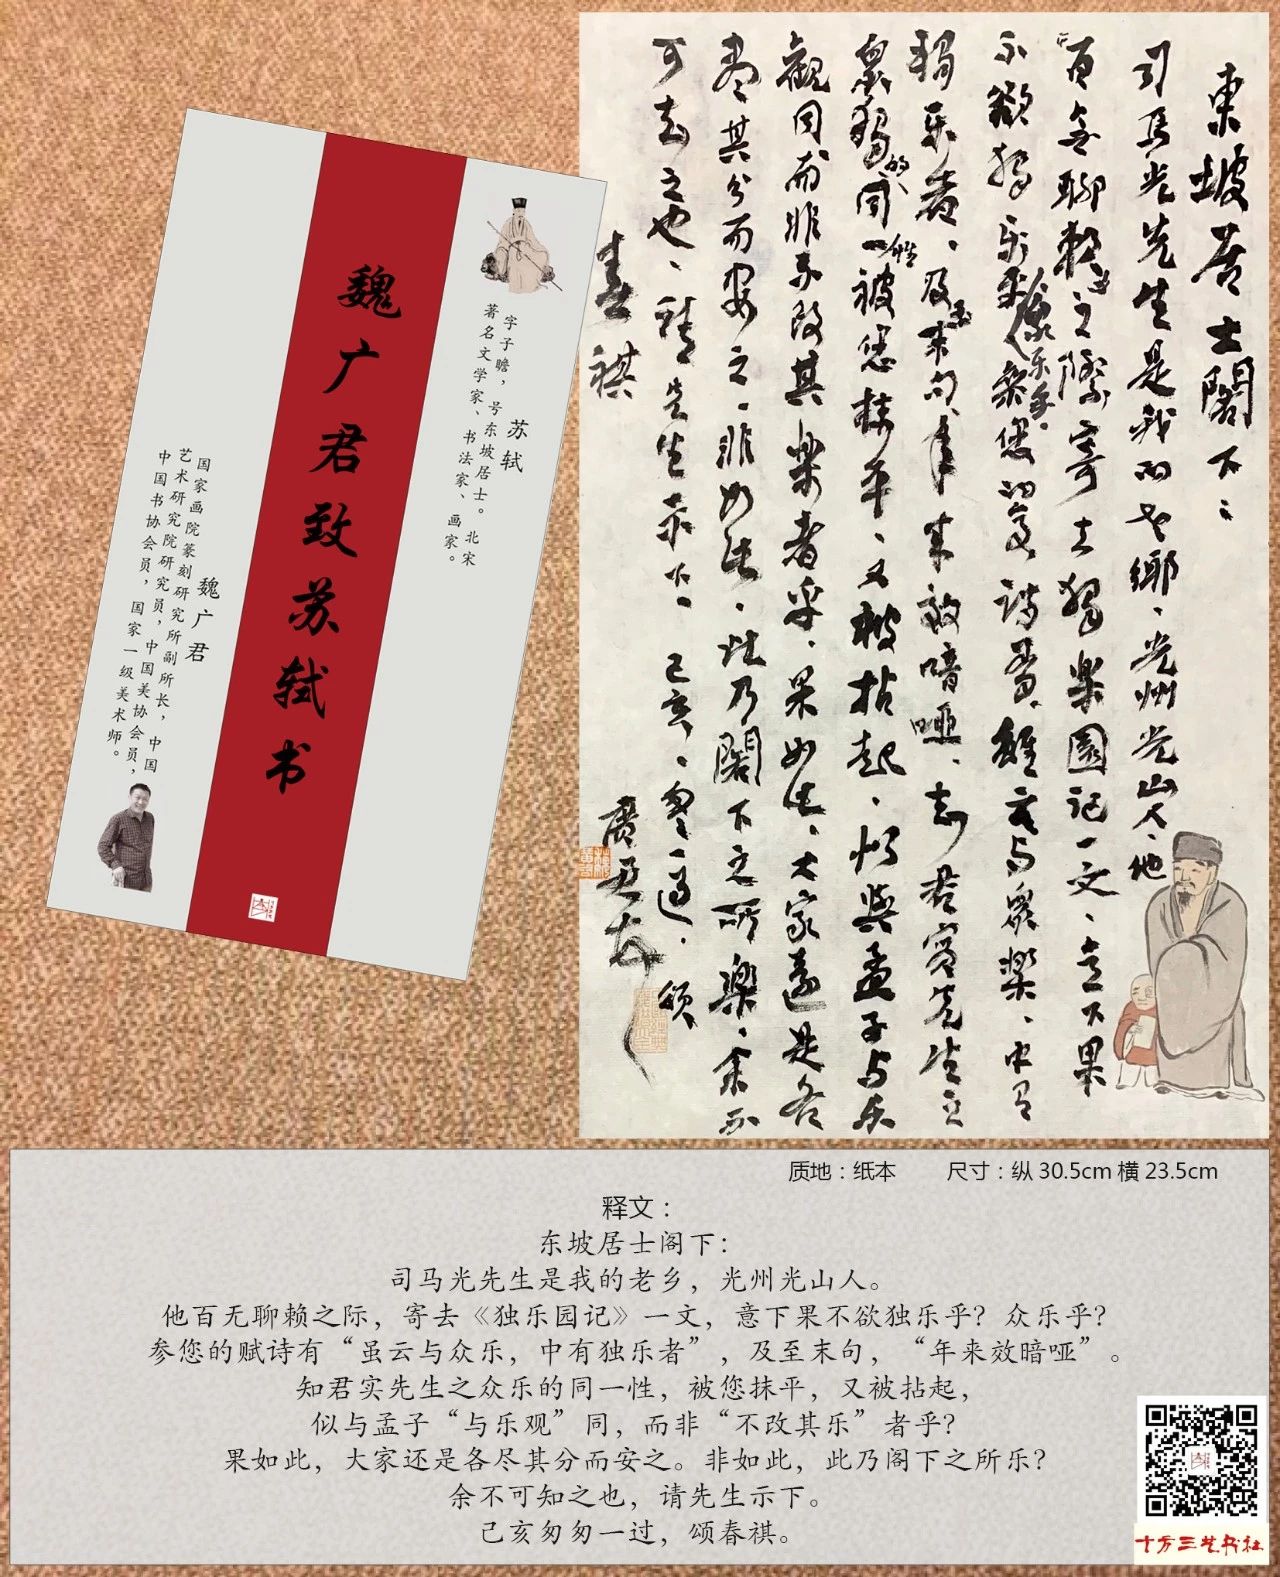 東坡居士閣下:
司马光先生是我的老鄉、光州光山人、他
百无聊赖之际寄去獨樂園记一文、意下果
不欲獨乐乎众乐乎、参您的赋诗有雖云与众樂、中有
獨乐者、及至末句年来效喑哑、知君实先生之
众樂的同一性被您抹平、又被拈起、似與孟子与乐
觀同而非不改其樂者乎、果如此、大家还是各
尽其分而安之、非如此、此乃閣下之所樂、余不
可知之也、请先生示下、己亥、匆匆一过、颂
春祺
苏轼
字子瞻，号东坡居士。北宋
著名文学家、书法家、画家。
魏广君致苏轼书
魏广君
国家画院篆刻研究所副所长，中国
艺术研究院研究员，中国美协会员，
中国书协会员，国家一级美术师。
质地：纸本 尺寸：纵 30.5cm 横 23.5cm
释文：
东坡居士阁下：
司马光先生是我的老乡，光州光山人。
他百无聊赖之际，寄去《独乐园记》一文，意下果不欲独乐乎？众乐乎？
参您的赋诗有“虽云与众乐，中有独乐者”，及至末句，“年来效暗哑”。
知君实先生之众乐的同一性，被您抹平，又被拈起，
似与孟子“与乐观”同，而非“不改其乐”者乎？
果如此，大家还是各尽其分而安之。非如此，此乃阁下之所乐？
余不可知之也，请先生示下。
己亥匆匆一过，颂春祺。
十方三艺书社